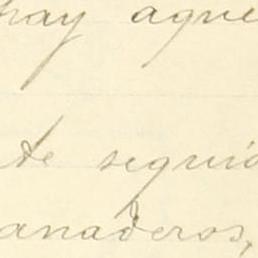 hay aque
te seguid
anaderos,